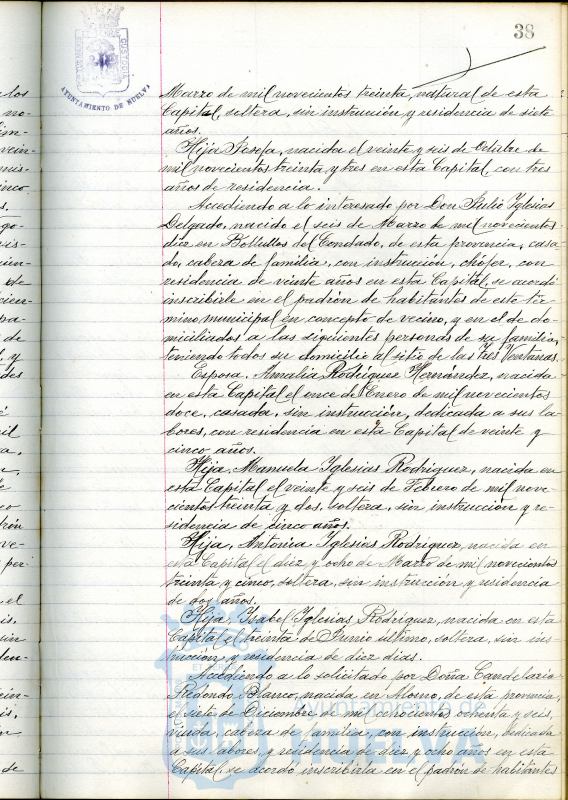 38
AYUNTAMIENTO DE HUELVA
Marzo de mil novecientos treinta, natural de esta
Capital, soltera, sin instrucción y residencia de siete
años.
Hija Josefa, nacida el veinte y seis de Octubre de
mil novecientos treinta y tres en esta Capital con tres
años de residencia.
Accediendo a lo interesado por Don Julio Iglesias
Delgado, nacido el seis de Marzo de mil novecientos
diez en Bollullos del Condado, de esta provincia, casa-
do, cabeza de familia, con instrucción, chófer, con
residencia de veinte años en esta Capital, se acordó
inscribirle en el padrón de habitantes de este tér-
mino municipal en concepto de vecino, y en el de do-
miciliados a las siguientes personas de su familia,
teniendo todos su domicilio al sitio de las Tres Ventanas.
Esposa, Amalia Rodríguez Hernández, nacida
en esta Capital el once de Enero de mil novecientos
doce, casada, sin instrucción, dedicada a sus la-
bores, con residencia en esta Capital de veinte y
cinco años.
Hija, Manuela Iglesias Rodriguez, nacida en
esta Capital el veinte y seis de Febrero de mil nove-
cientos treinta y dos, soltera, sin instrucción y re-
sidencia de cinco años.
Hija, Antonia Iglesias Rodriguez, nacida en
esta Capital el diez y ocho de Marzo de mil novecientos
treinta y cinco, soltera, sin instrucción y residencia
de dos años.
Hija, Isabel Iglesias Rodriguez, nacida en esta
Capital el treinta de Junio último, soltera, sin ins-
trucción, y residencia de diez dias.
Accediendo a lo solicitado por Doña Candelaria
Redondo Blanco, nacida en, de esta provincia,
el siete de Diciembre de mil ochocientos ochenta y seis,
viuda, cabeza de familia, con instrucción, dedicada
a sus labores, y residencia de diez y ocho años en esta
Capital, se acordó inscribirla en el padrón de habitantes
Ayuntamiento de
HUELVA